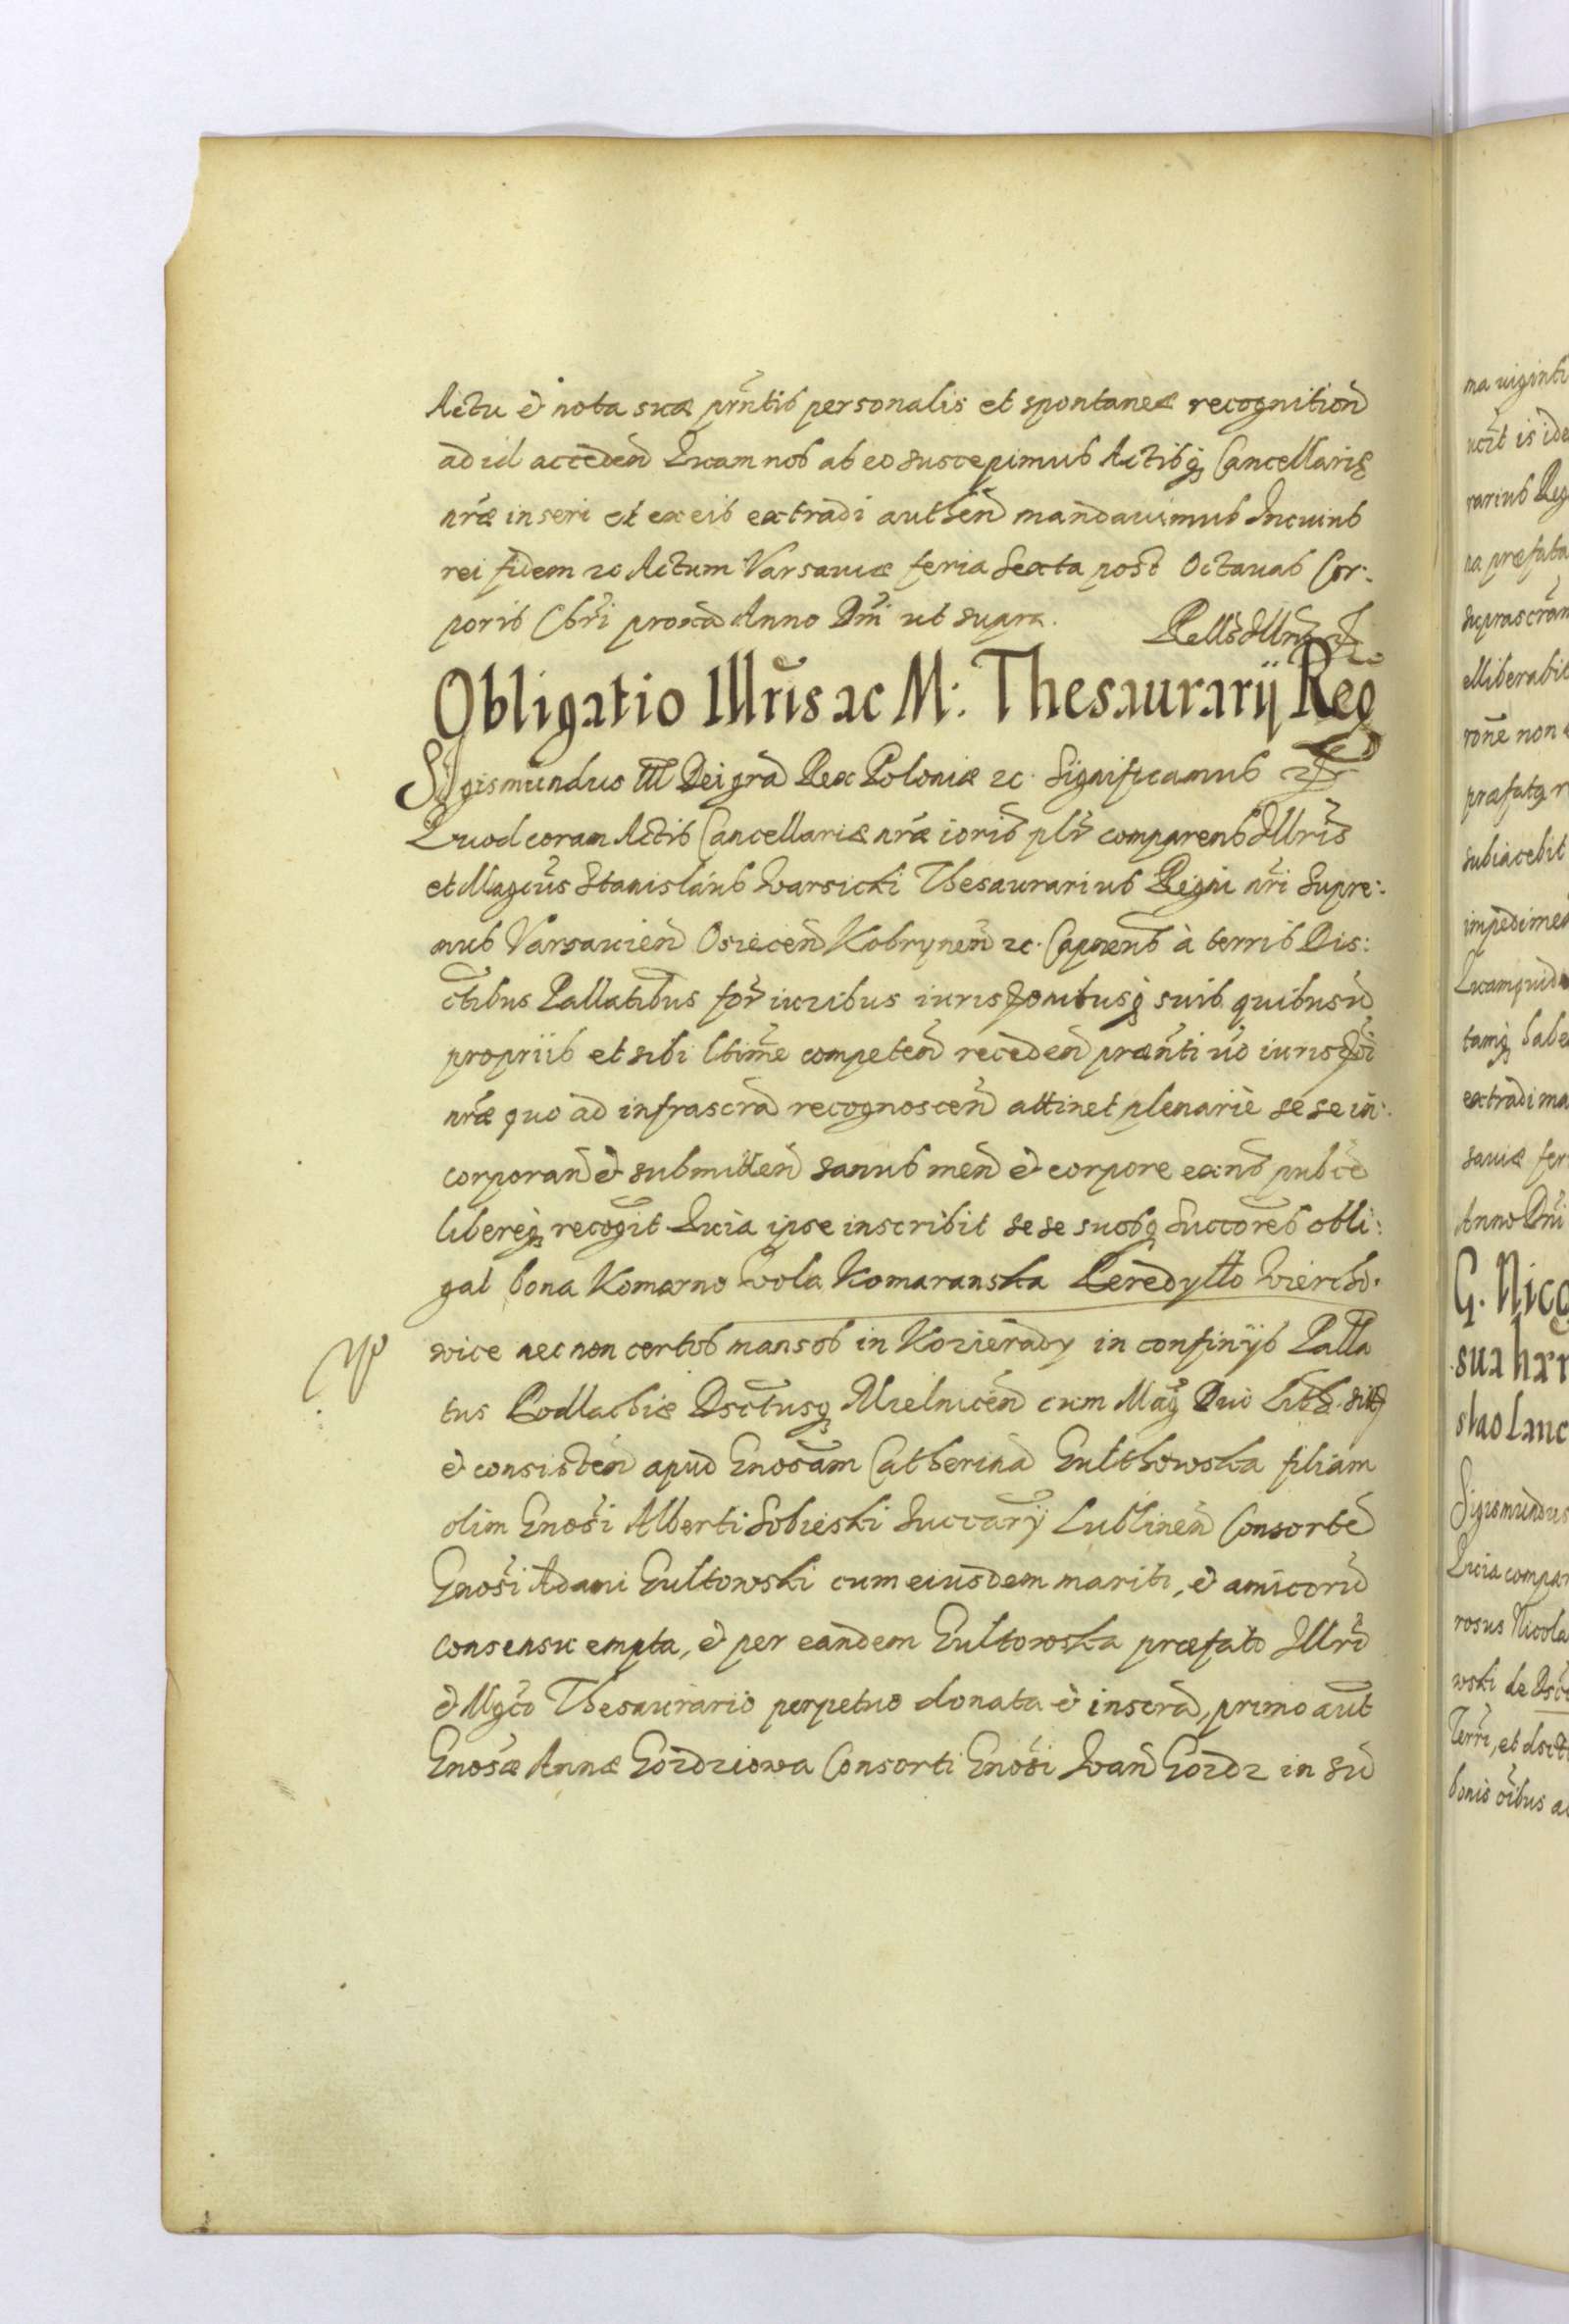 Actu & nota suæ pr̃ntis personalis et spontaneæ recognition̄
ad id acceden̄ Quam nos ab eo suscepimus Actibq̨ Cancellariæ
nr̃æ inseri et ex eis extradi authen̄ mandavimus In cuius
rei fidem ꝛc Actum Varsaviæ feria Sexta post Octavas Cor:
poris Chr̃i proxa̅ Anno Dn̄i ut supra.
Obligatio Illr̃is ac M: Thesaurarij Reg
Sigismundus III Dei gra̅ Rex Poloniæ ꝛc. Significamus
Quod coram Actis Cancellariæ nr̃æ ioris plr̃ comparens Illris
et Magcūs Stanislaus Warsicki Thesaurarius Regni nr̃i Supre:
mus Varsavien̄ Osiecen̄ Kobrynen̄ ꝛc. Capnens à terris Dis:
ctibus Pallatibus for̃ iuribus iurisdonibusq̨ suis quibusu̅
propriis et sibi ltime competen̄ receden̄ præn̄ti ũo iurisdōi
nr̃æ quo ad infrascra̅ recognoscen̄ attinet plenariè se se in:
corporan̄ & submitten̄ sanus men̄ & corpore exn̄s pub ce̅
libereq̨ recog̃it Quia ipse inscribit se se suosq̨ Succores obli:
gat bona Komarno Wola Komaranska Peredylło Wiercho:
wice nec non certos mansos in Kozierady in confinijs Palla
tus Podlachiæ Dsctusq̨ Mielnicen̄ cum Mag̃ Duō Lith. sit̃
& consisten̄ apud Gnosam Catherina̅ Gulthowska filiam
olim Gnosi Alberti Sobieski Succarij Lublinen̄ Consorte̅
Gnosi Adami Gultowski cum eiusdem mariti, & amicoru̅
consensu empta, & per eandem Gultowska præfato Illri̅
& Mgco Thesaurario perpetuo donata & inscra̅, primo aut̃
Gnosæ Annæ Gozdziowa Consorti Gnosi Iwan̄ Gozdz in su̅
ma viginti
ucīt is ide
rarius Reg
na præfata
suprascrām
elliberabit
rone non
præfatą r
subiacebit
impedimen
Quamquid
tamq̨ habe
extradi ma
saviæ fer
Anno Dn̄i
G. Nico
sua hær
slao Lanc
Sigismundus
Quia compar
rosus Nicola
wski de Dsc
Terri, et dsct
bonis oibus a